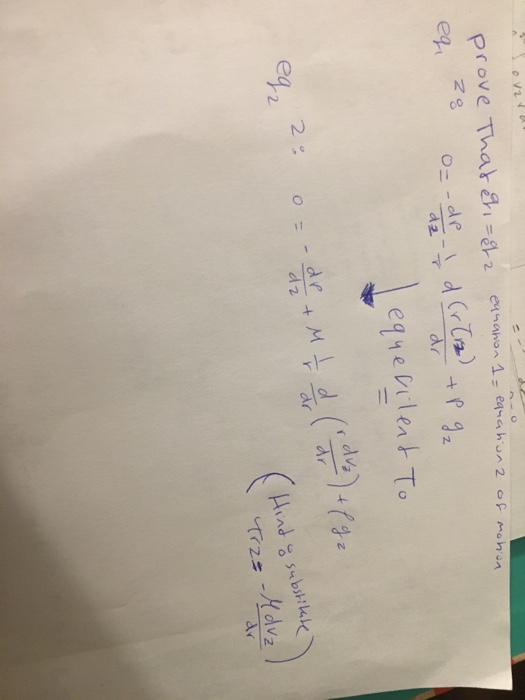 prove That eq1 = eq2 equation 1 = equation 2 of motion
eq1 z: 0 = -dP/dz - 1/r d(rτrz)/dr + ρ gz
equevilent To
eq2 z: 0 = - dP/dz + μ 1/r d/dr (r dvz/dr) + ρgz
(Hind: substitute
τrz = -μ dvz/dr)